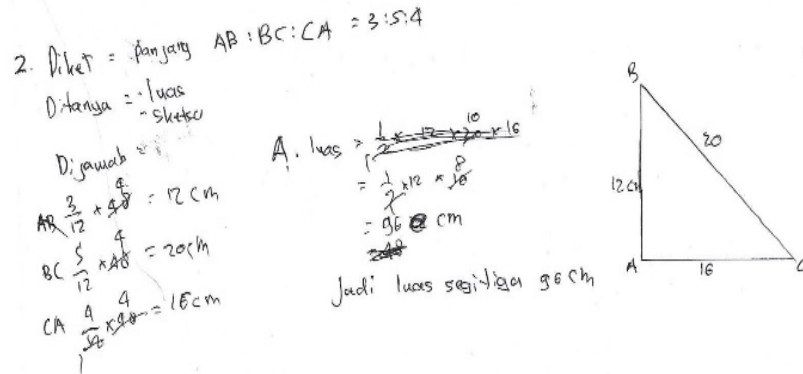 2. Diket = panjang AB : BC : CA = 3:5:4
Ditanya = - luas
- sketsa
Dijawab =
AB 3/12 × 48 4 = 12 cm
BC 5/12 × 48 4 = 20 cm
CA 4/12 × 48 4 = 16 cm
1
A. luas = 1/2 × 12 × 20 10 × 16
= 1/2 × 12 × 16 8
1
= 96 cm
Jadi luas segitiga 96 cm
B
20
12 cm
A
16
C